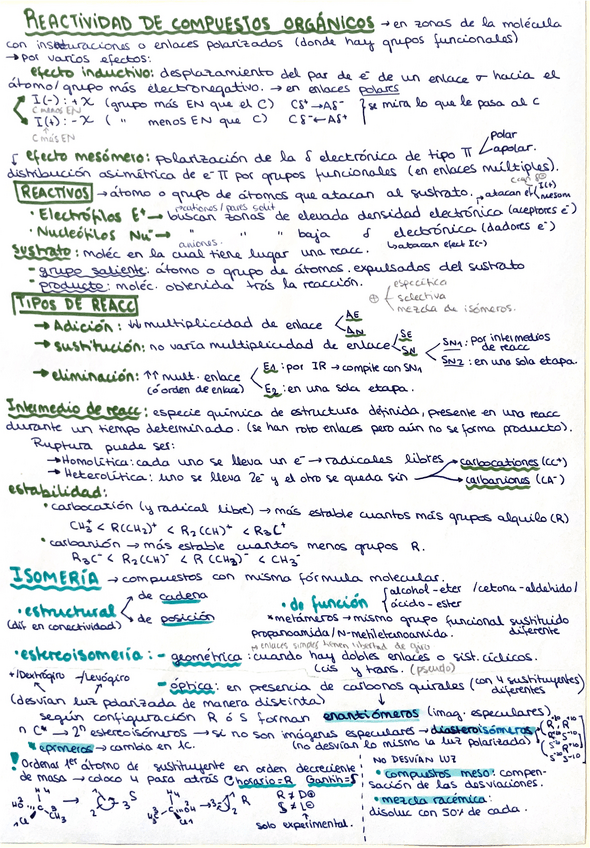 REACTIVIDAD DE COMPUESTOS ORGÁNICOS → en zonas de la molécula
con insaturaciones o enlaces polarizados (donde hay grupos funcionales)
→ por varios efectos:
efecto inductivo: desplazamiento del par de e⁻ de un enlace σ hacia el
átomo/grupo más electronegativo. → en enlaces polares
I(-): +X (grupo más EN que el C) Cδ⁺→Aδ⁻ } se mira lo que le pasa al C
C menos EN
I(+): -X ( " menos EN que C) Cδ⁻←Aδ⁺
C más EN
efecto mesómero: polarización de la δ electrónica de tipo π polar apolar.
distribución asimétrica de e⁻ π por grupos funcionales (en enlaces múltiples).
REACTIVOS → átomo o grupo de átomos que atacan al sustrato.
· Electrófilos E⁺ → buscan zonas de elevada densidad electrónica (aceptores e⁻)
· Nucleófilos Nu⁻ → " " " baja δ electrónica (dadores e⁻)
aniones.
sustrato: moléc en la cual tiene lugar una reacc.
- grupo saliente: átomo o grupo de átomos. expulsados del sustrato
- producto: moléc. obtenida trás la reacción.
específica
⊕ selectiva
mezcla de isómeros.
TIPOS DE REACC
→ Adición: ↓↓ multiplicidad de enlace AE AN
→ sustitución: no varía multiplicidad de enlace SE SN
SN1: por intermedios de reacc
SN2: en una sola etapa.
→ eliminación: ↑↑ mult. enlace (ó orden de enlace)
E1: por IR → compite con SN1
E2: en una sola etapa.
Intermedio de reacc: especie química de estructura definida, presente en una reacc
durante un tiempo determinado. (se han roto enlaces pero aún no se forma producto).
Ruptura puede ser:
→ Homolítica: cada uno se lleva un e⁻ → radicales libres
→ Heterolítica: uno se lleva 2e⁻ y el otro se queda sin
carbocationes (CC⁺)
carbaniones (CA⁻)
estabilidad:
· carbocatión (y radical libre) → más estable cuantos más grupos alquilo (R)
CH₃⁺ < R(CH₂)⁺ < R₂(CH)⁺ < R₃C⁺
· carbanión → más estable cuantos menos grupos R.
R₃C⁻ < R₂(CH)⁻ < R(CH₂)⁻ < CH₃⁻
ISOMERÍA → compuestos con misma fórmula molecular.
· estructural (dif en conectividad)
de cadena
de posición
· de función
alcohol - eter / cetona - aldehído /
ácido - ester
*metámeros → mismo grupo funcional sustituido diferente
propanoamida / N-metiletanoamida.
enlaces simples tienen libertad de giro
· estereoisomería: - geométrica: cuando hay dobles enlaces o sist. cíclicos.
(cis y trans. (pseudo)
+/Dextrógiro -/Levógiro
- óptica: en presencia de carbonos quirales (con 4 sustituyentes diferentes)
(desvían luz polarizada de manera distinta)
según configuración R ó S forman enantiómeros (imag. especulares)
n C* → 2ⁿ estereoisómeros → si no son imágenes especulares → diasteroisómeros
* epímeros → cambia en 1C.
(no desvían lo mismo la luz polarizada)
! Ordenas 1er átomo de sustituyente en orden decreciente
de masa → coloco 4 para atrás
horario = R
R ≠ D⊕
S ≠ L⊖
solo experimental.
NO DESVÍAN LUZ
· compuestos meso: compensación de las desviaciones.
· mezcla racémica:
disoluc con 50% de cada.